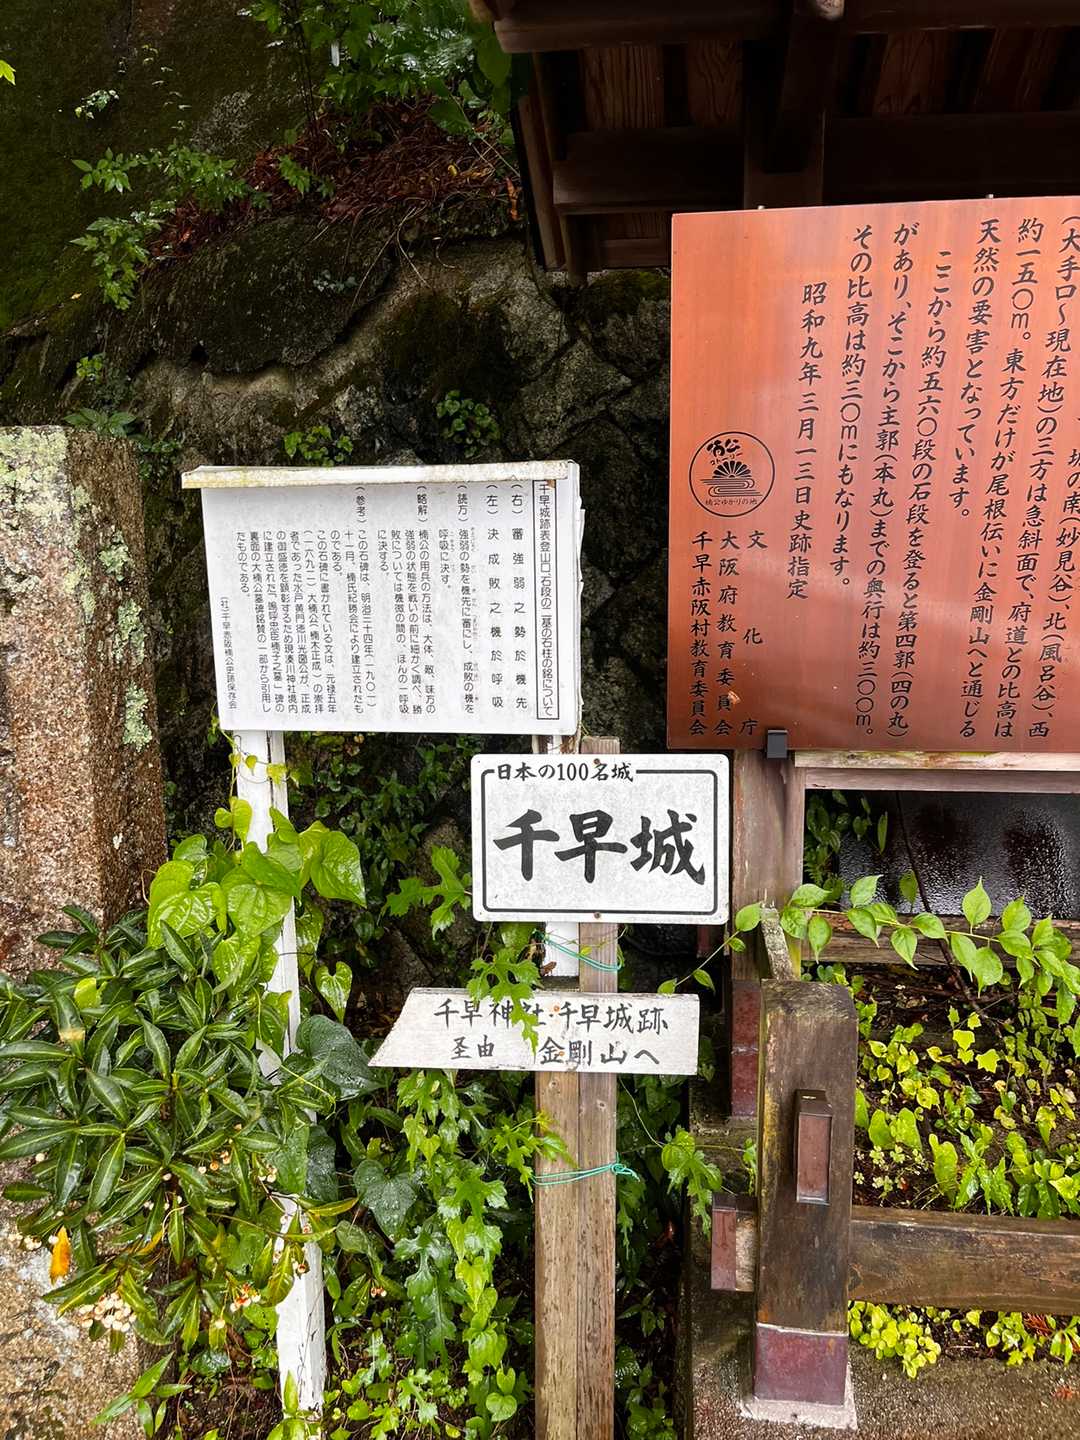 (大手口〜現在地)の三方は急斜面で、府道との比高は
約一五〇m。東方だけが尾根伝いに金剛山へと通じる
天然の要害となっています。
ここから約五六〇段の石段を登ると第四郭(四の丸)
があり、そこから主郭(本丸)までの奥行は約三〇〇m。
その比高は約三〇mにもなります。
昭和九年三月一三日史跡指定
文化庁
大阪府教育委員会
千早赤阪村教育委員会
楠公
ストーリー
楠公ゆかりの地
城の南(妙見谷)、北(風呂谷)、西
千早城跡表登山口石段の二基の石柱の銘について
(右)審強弱之勢於機先
(左)決成敗之機於呼吸
(読方)強弱の勢を機先に審にし、成敗の機を
呼吸に決す。
(略解)楠公の用兵の方法は、大体、敵、味方の
強弱の状態を戦いの前に細かく調べ、勝
敗については機微の間の、ほんの一呼吸
に決する。
(参考)この石碑は、明治三十四年(一九〇一)
十一月、楠氏紀勝会により建立されたも
のである。
この石碑に書かれている文は、元禄五年
(一六九二)大楠公(楠木正成)の崇拝
者であった水戸黄門徳川光圀公が、正成
の御盛徳を顕彰するため現湊川神社境内
に建立された「嗚呼忠臣楠子之墓」碑の
裏面の大楠公墓碑銘賛の一部から引用し
たものである。
(社)千早赤阪楠公史跡保存会
日本の100名城
千早城
千早神社・千早城跡
圣由 金剛山へ